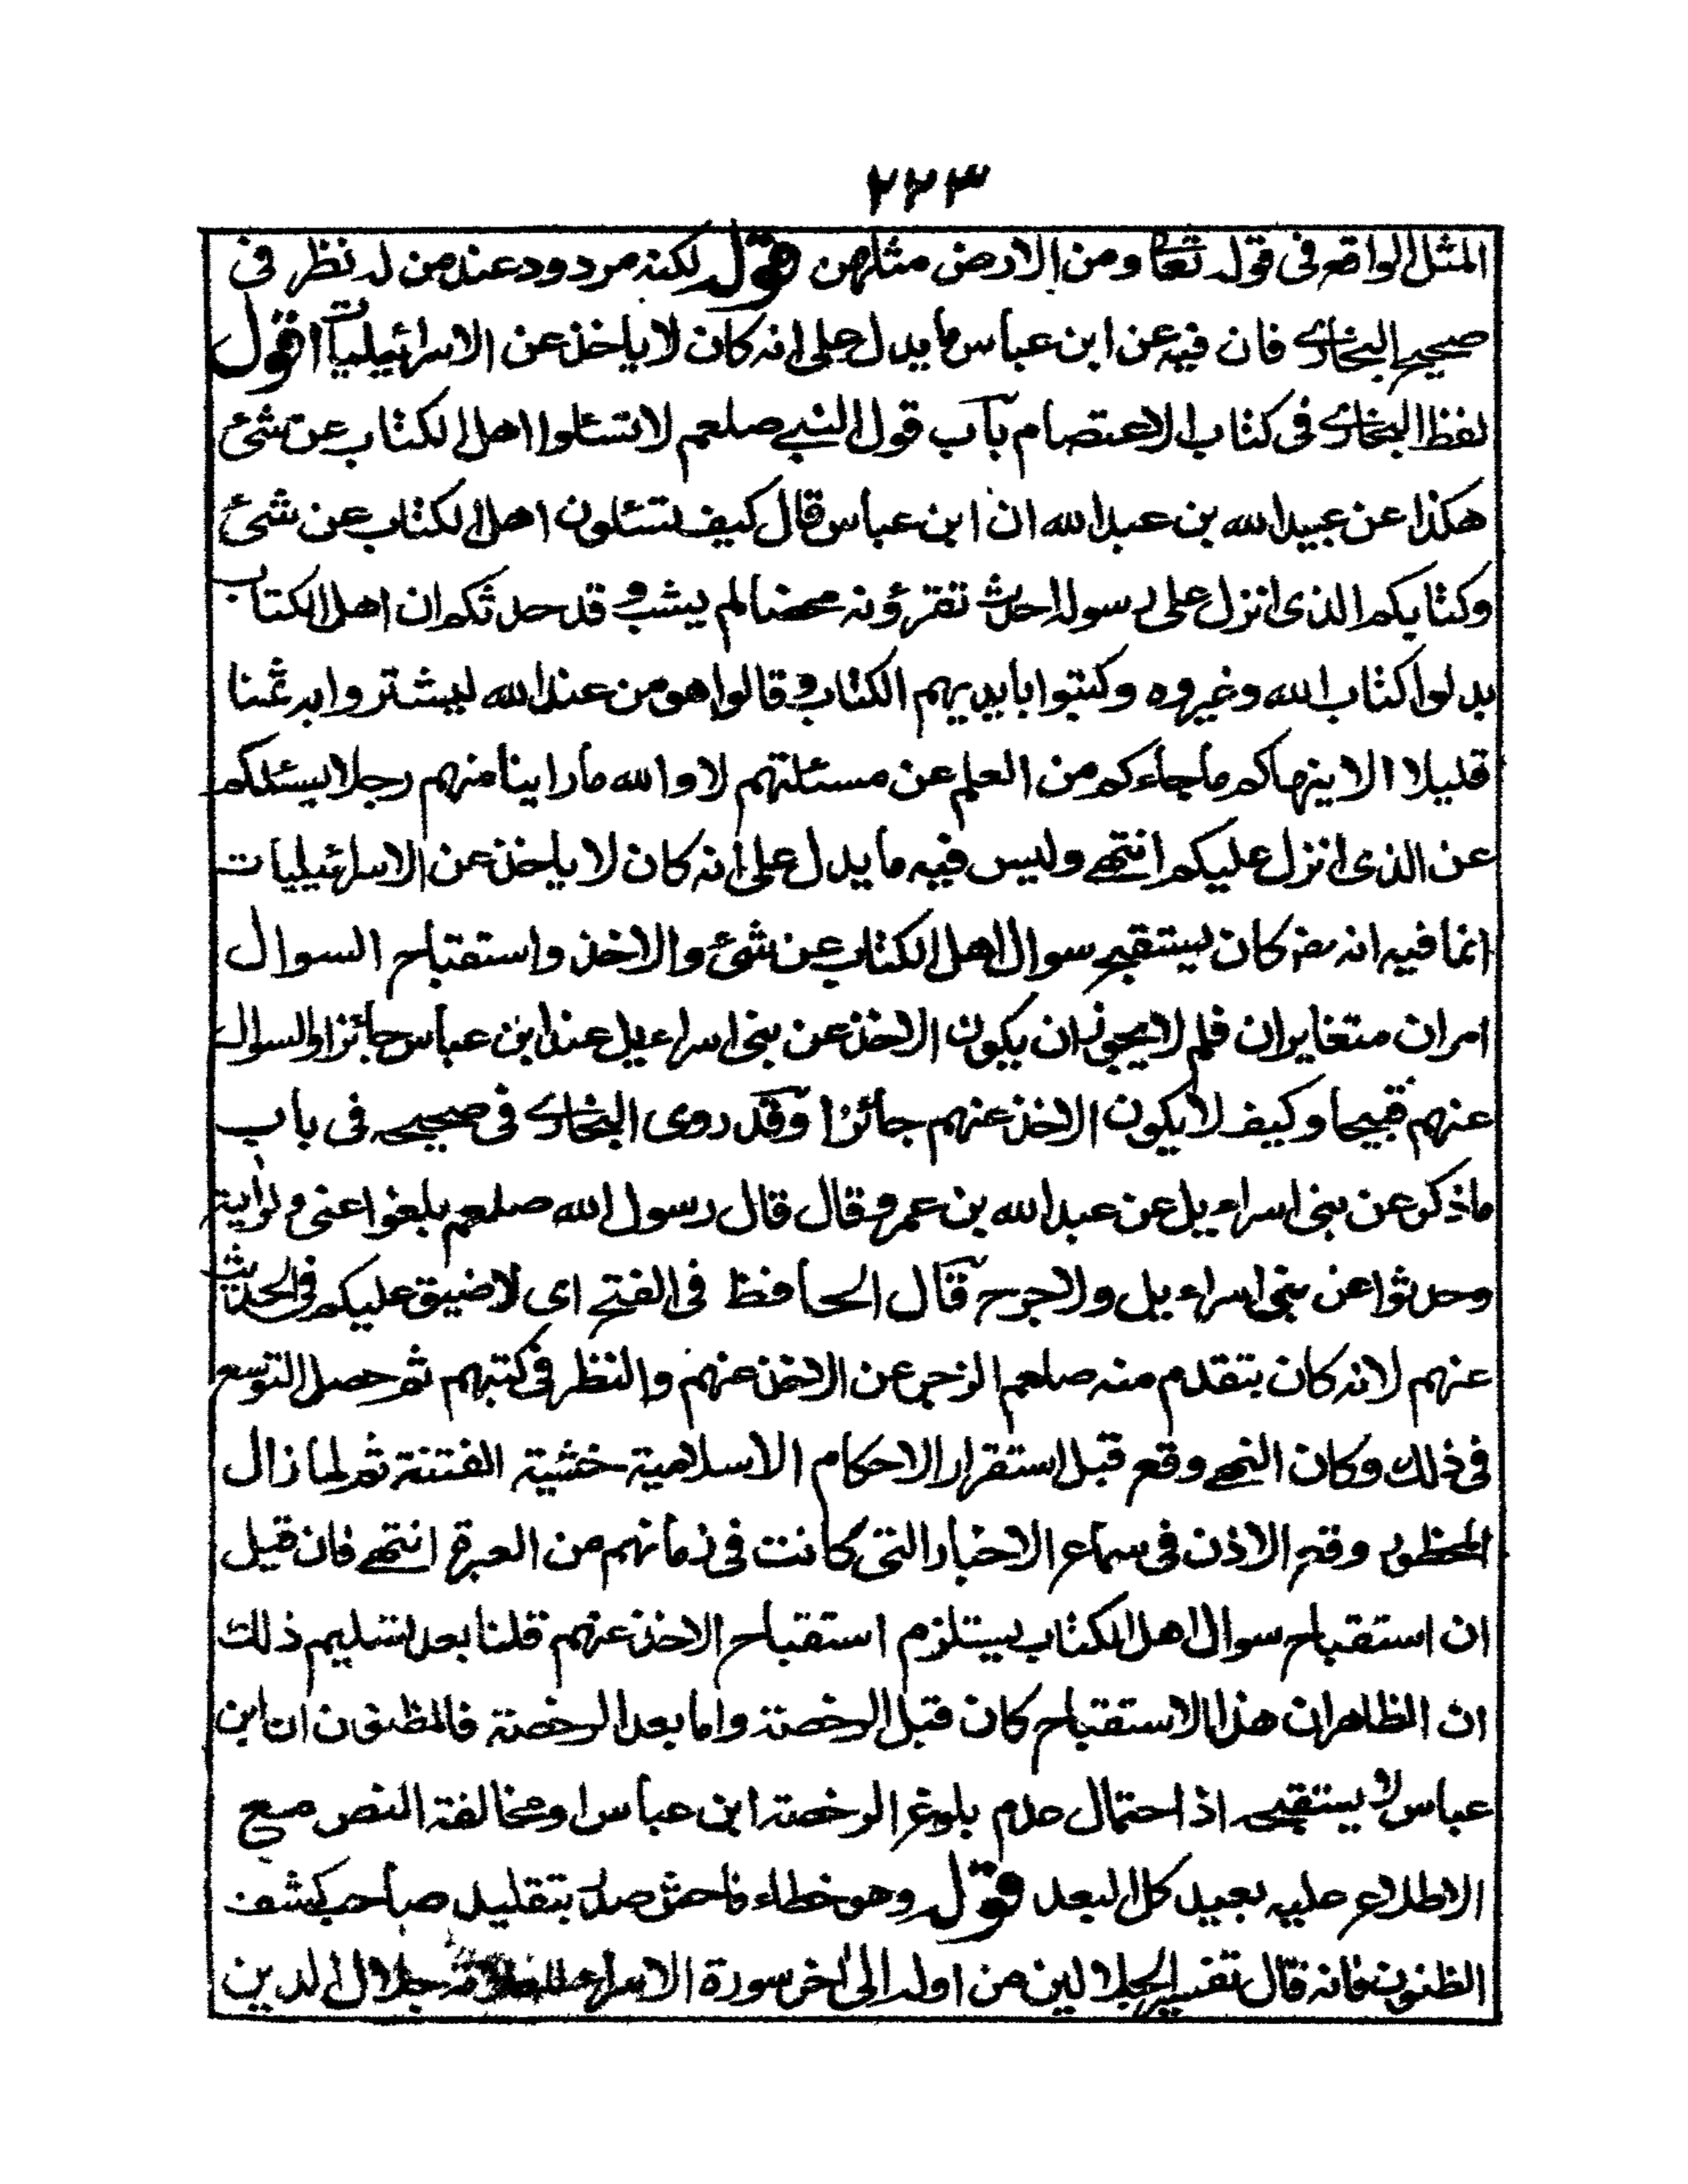 ٢٢٣
المثل الواقع فى قوله تعا ومن الارض مثلهن قول لكنه مردود عند من له نظر فى
صحيح البخارى فان فيه عن ابن عباس ما يدل على انه كان لا ياخذ عن الاسرائيليات اقول
لفظ البخارى فى كتاب الاعتصام باب قول النبى صلعم لا تسئلوا اهل الكتاب عن شئ
هكذا عن عبيد الله بن عبد الله ان ابن عباس قال كيف تسئلون اهل الكتاب عن شئ
وكتابكم الذى انزل على رسوله احدث تقرؤنه محضا لم يشب و قد حدثكم ان اهل الكتاب
بدلوا كتاب الله وغيروه وكتبوا بايديهم الكتاب و قالوا هو من عند الله ليشتروا به ثمنا
قليلا الا ينهاكم ما جاءكم من العلم عن مسئلتهم لا والله ما راينا منهم رجلا يسئلكم
عن الذى انزل عليكم انتهى وليس فيه ما يدل على انه كان لا ياخذ عن الاسرائيليات
انما فيه انه رضه كان يستقبح سوال اهل الكتاب عن شئ والاخذ واستقباح السوال
امران متغايران فلم لا يجوز ان يكون الاخذ عن بنى اسراءيل عند ابن عباس جائزا والسوال
عنهم قبيحا وكيف لا يكون الاخذ عنهم جائزا وقد روى البخارى فى صحيحه فى باب
ما ذكر عن بنى اسراءيل عن عبد الله بن عمرو قال قال رسول الله صلعم بلغوا عنى ولو اية
وحدثوا عن بنى اسراءيل ولا حرج قال الحافظ فى الفتح اى لا ضيق عليكم فى الحديث
عنهم لانه كان يتقدم منه صلعم الزجر عن الاخذ عنهم والنظر فى كتبهم ثم حصل التوسع
فى ذلك وكان النهى وقع قبل استقرار الاحكام الاسلامية خشية الفتنة ثم لما زال
المحظور وقع الاذن فى سماع الاخبار التى كانت فى زمانهم من العبرة انتهى فان قيل
ان استقباح سوال اهل الكتاب يستلزم استقباح الاخذ عنهم قلنا بعد تسليم ذلك
ان الظاهر ان هذا الاستقباح كان قبل الرخصة واما بعد الرخصة فالمظنون ان ابن
عباس لا يستقبحه اذ احتمال عدم بلوغ الرخصة ابن عباس او مخالفة النص مع
الاطلاع عليه بعيد كل البعد قول وهو خطاء فاحش صدر بتقليد صاحب كشف
الظنون فانه قال تفسير الجلالين من اوله الى اخر سورة الاسراء للعلامة جلال الدين